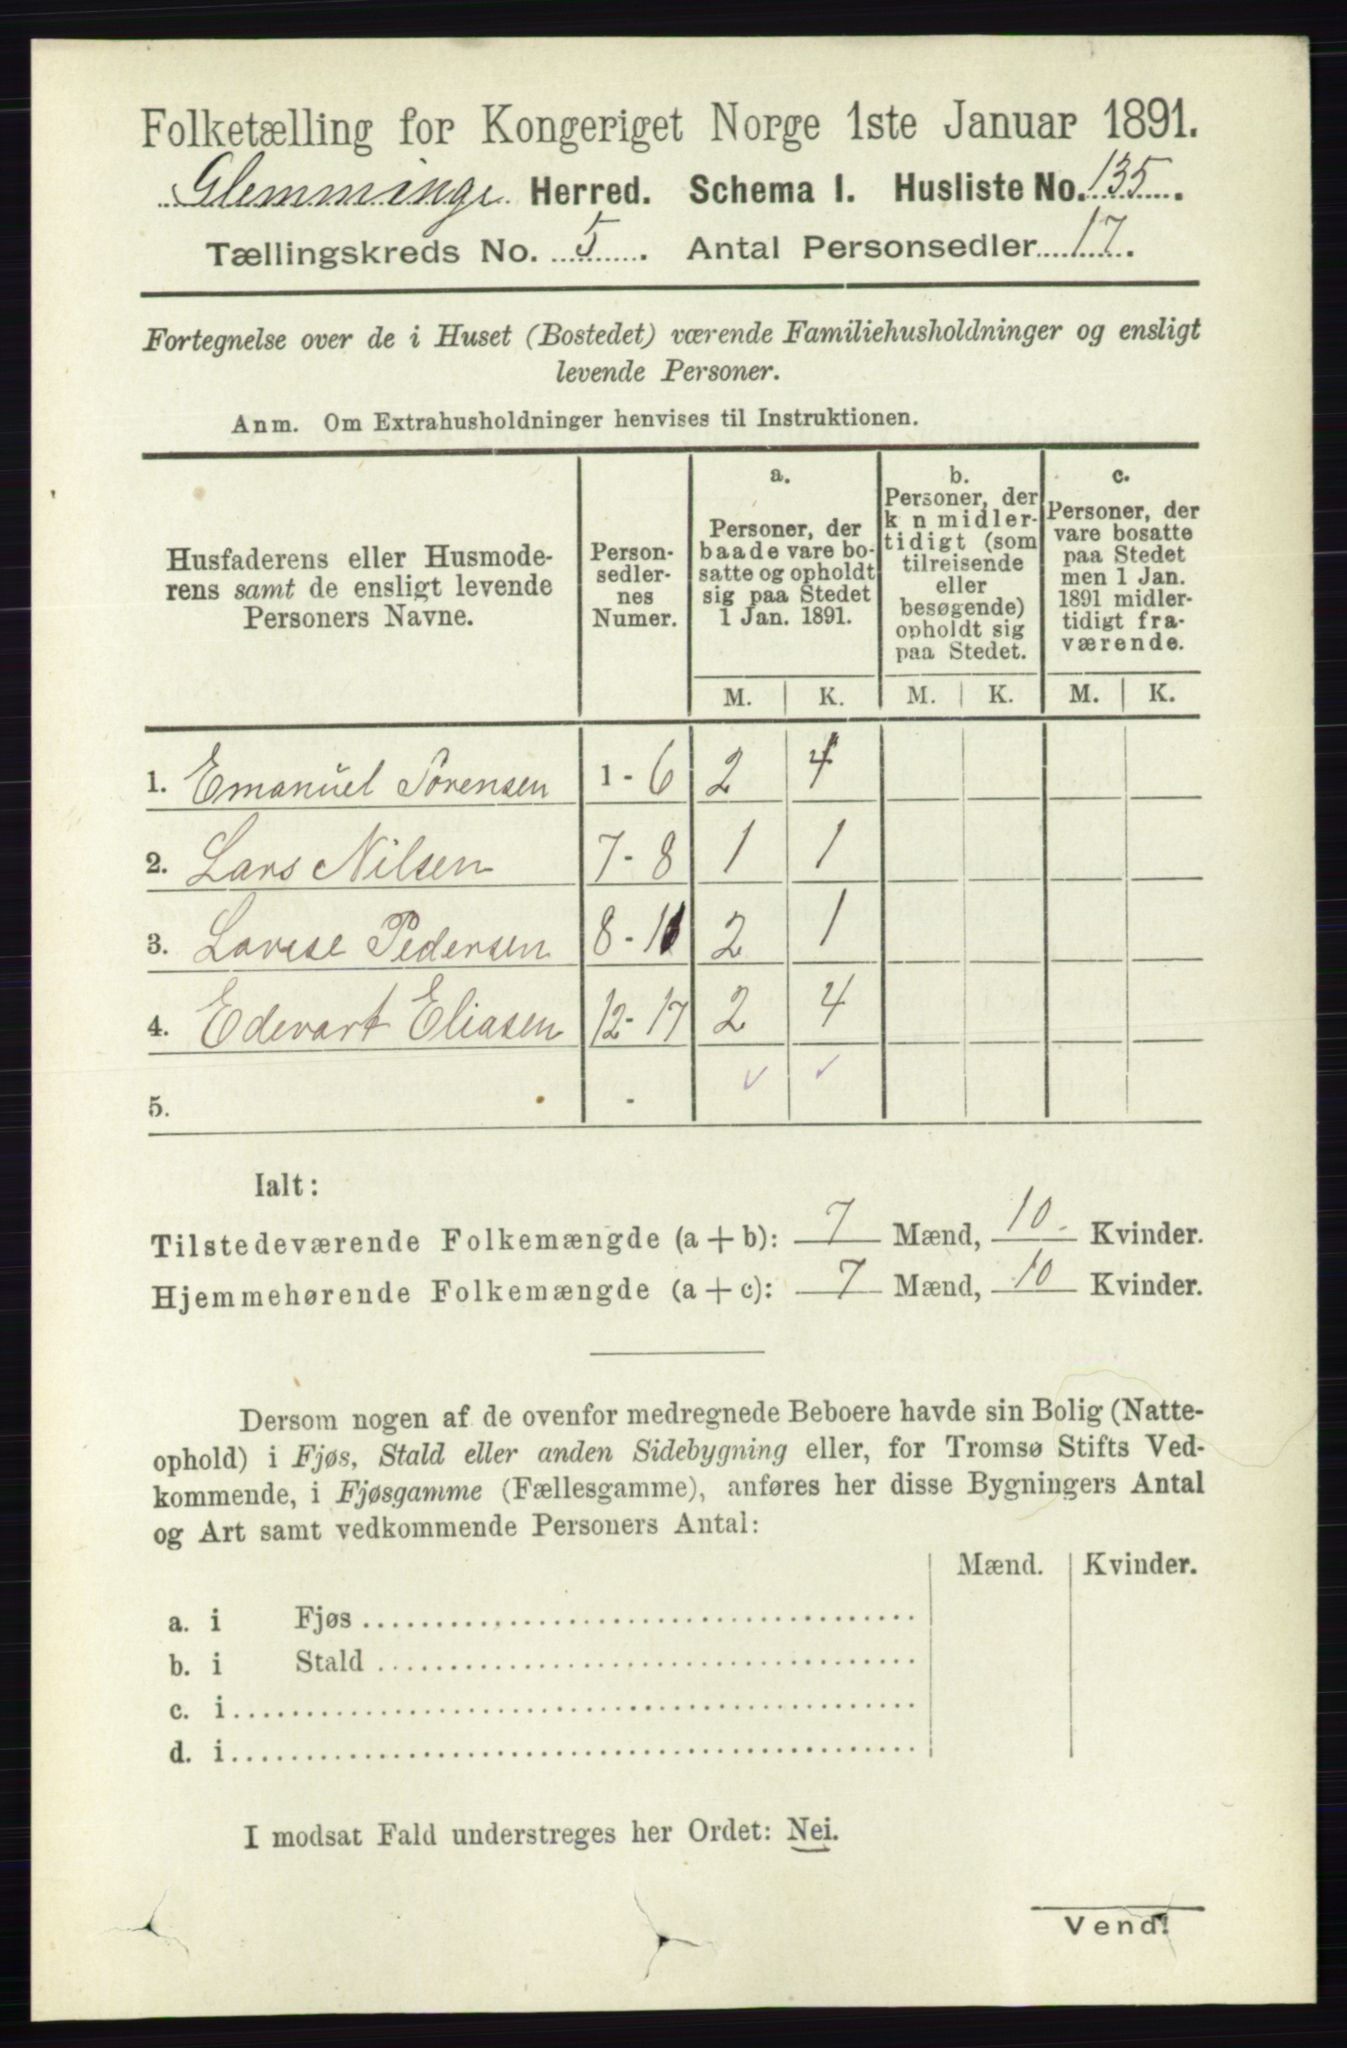 Folketælling for Kongeriget Norge 1ste Januar 1891.
Glemminge Herred. Schema I. Husliste No. 135.
Tællingskreds No. 5. Antal Personsedler 17.
Fortegnelse over de i Huset (Bostedet) værende Familiehusholdninger og ensligt
levende Personer.
Anm. Om Extrahusholdninger henvises til Instruktionen.
Husfaderens eller Husmode-
rens samt de ensligt levende
Personers Navne.
Person-
sedler-
nes
Numer.
a.
Personer, der
baade vare bo-
satte og opholdt
sig paa Stedet
1 Jan. 1891.
b.
Personer, der
k n midler-
tidigt (som
tilreisende
eller
besøgende)
opholdt sig
paa Stedet.
c.
Personer, der
vare bosatte
paa Stedet
men 1 Jan.
1891 midler-
tidigt fra-
værende.
M. K. M. K. M. K.
1. Emanuel Sørensen 1 - 6 2 4
2. Lars Nilsen 7 - 8 1 1
3. Lovise Pedersen 8 - 11 2 1
4. Edevart Eliasen 12 - 17 2 4
5. - ✓ ✓
Ialt:
Tilstedeværende Folkemængde (a + b): 7 Mænd, 10 Kvinder.
Hjemmehørende Folkemængde (a + c): 7 Mænd, 10 Kvinder.
Dersom nogen af de ovenfor medregnede Beboere havde sin Bolig (Natte-
ophold) i Fjøs, Stald eller anden Sidebygning eller, for Tromsø Stifts Ved-
kommende, i Fjøsgamme (Fællesgamme), anføres her disse Bygningers Antal
og Art samt vedkommende Personers Antal:
Mænd. Kvinder.
a. i Fjøs
b. i Stald
c. i
d. i
I modsat Fald understreges her Ordet: Nei.
Vend!